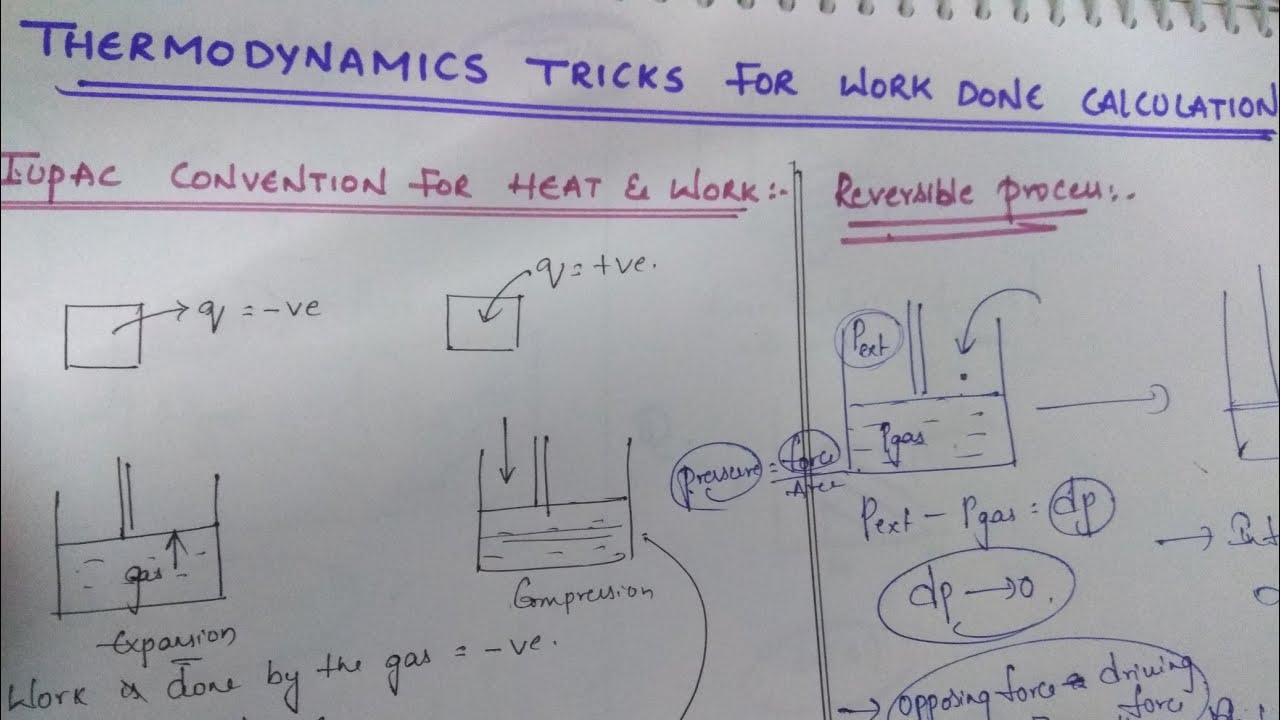 THERMODYNAMICS TRICKS FOR WORK DONE CALCULATION
IUPAC CONVENTION FOR HEAT & WORK:-
q = -ve
q = +ve.
gas
Expansion
Compression
Work is done by the gas = -ve.
Reversible process:-
Pext
Pgas
Pressure = force
Area
Pext - Pgas = dp
dp → 0.
→ opposing force driving
force
→ Int